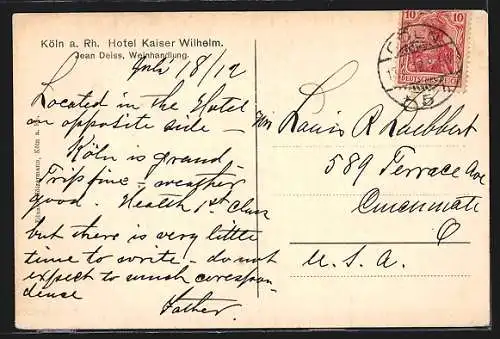 Köln a. Rh. Hotel Kaiser Wilhelm.
Jean Deiss, Weinhandlung.
July 18/12
Located in the Hotel
on opposite side —
Köln is grand
Trip fine — weather
good. Health 1st class
but there is very little
time to write — do not
expect to much corespon-
dense
Father.
10 10
DEUTSCHES REICH
CÖLN
5
Louis R Luebbert
589 Terrace Ave
Cincinnati
O
U. S. A.
Köln a.